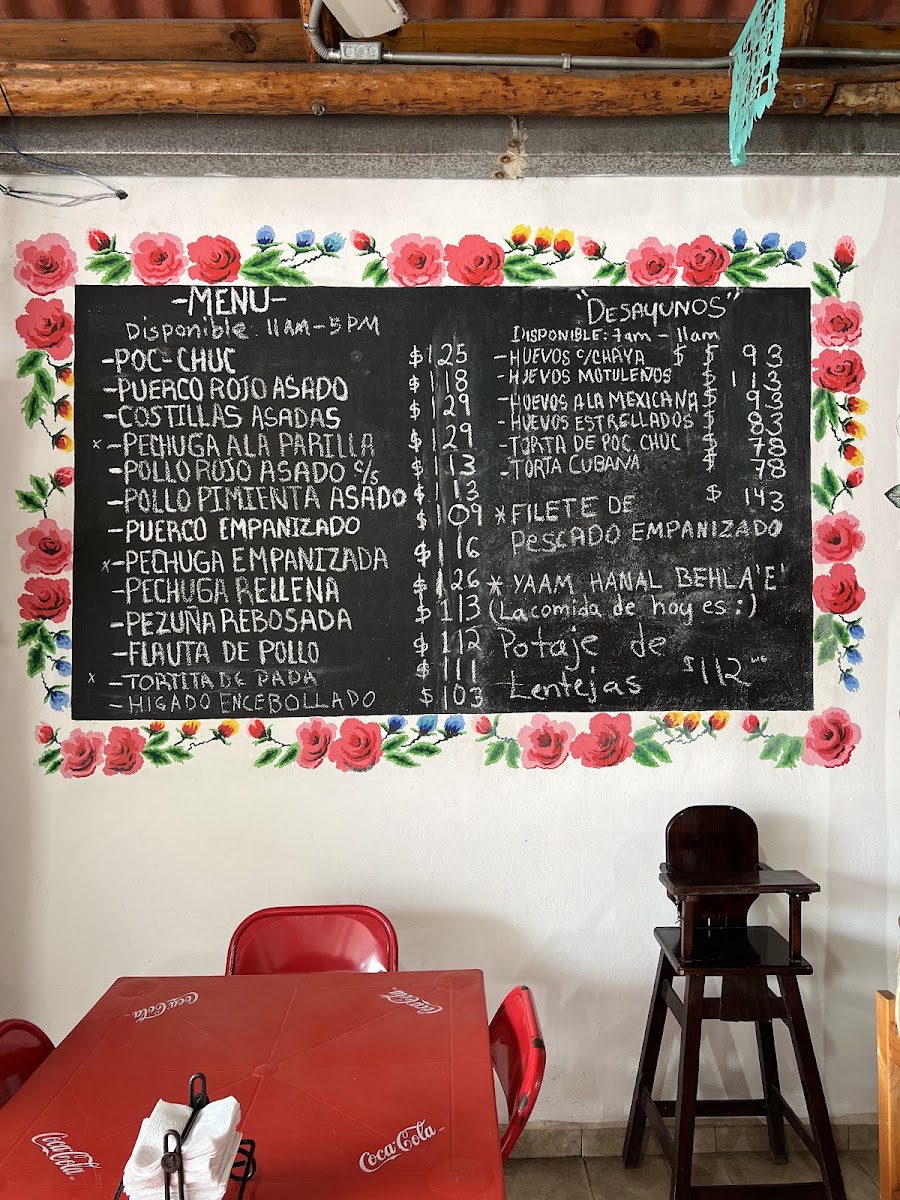 -MENU-
Disponible 11AM-5PM
-POC-CHUC $125
-PUERCO ROJO ASADO $118
-COSTILLAS ASADAS $129
x-PECHUGA A LA PARILLA $129
-POLLO ROJO ASADO c/s $113
-POLLO PIMIENTA ASADO $113
-PUERCO EMPANIZADO $109
x-PECHUGA EMPANIZADA $116
-PECHUGA RELLENA $126
-PEZUÑA REBOSADA $113
-FLAUTA DE POLLO $112
x -TORTITA DE PAPA $111
-HIGADO ENCEBOLLADO $103
"DESAYUNOS"
DISPONIBLE: 7am - 11am
-HUEVOS C/CHAYA $ $ 93
-HUEVOS MOTULEÑOS $ 113
-HUEVOS A LA MEXICANA $ 93
-HUEVOS ESTRELLADOS $ 83
-TORTA DE POC CHUC $ 78
-TORTA CUBANA $ 78
$ 143
*FILETE DE
PESCADO EMPANIZADO
* YAAM HANAL BEHLA'E'
(La comida de hoy es:)
Potaje de
Lentejas $112
Coca-Cola
Coca-Cola
Coca-Cola
Coca-Cola